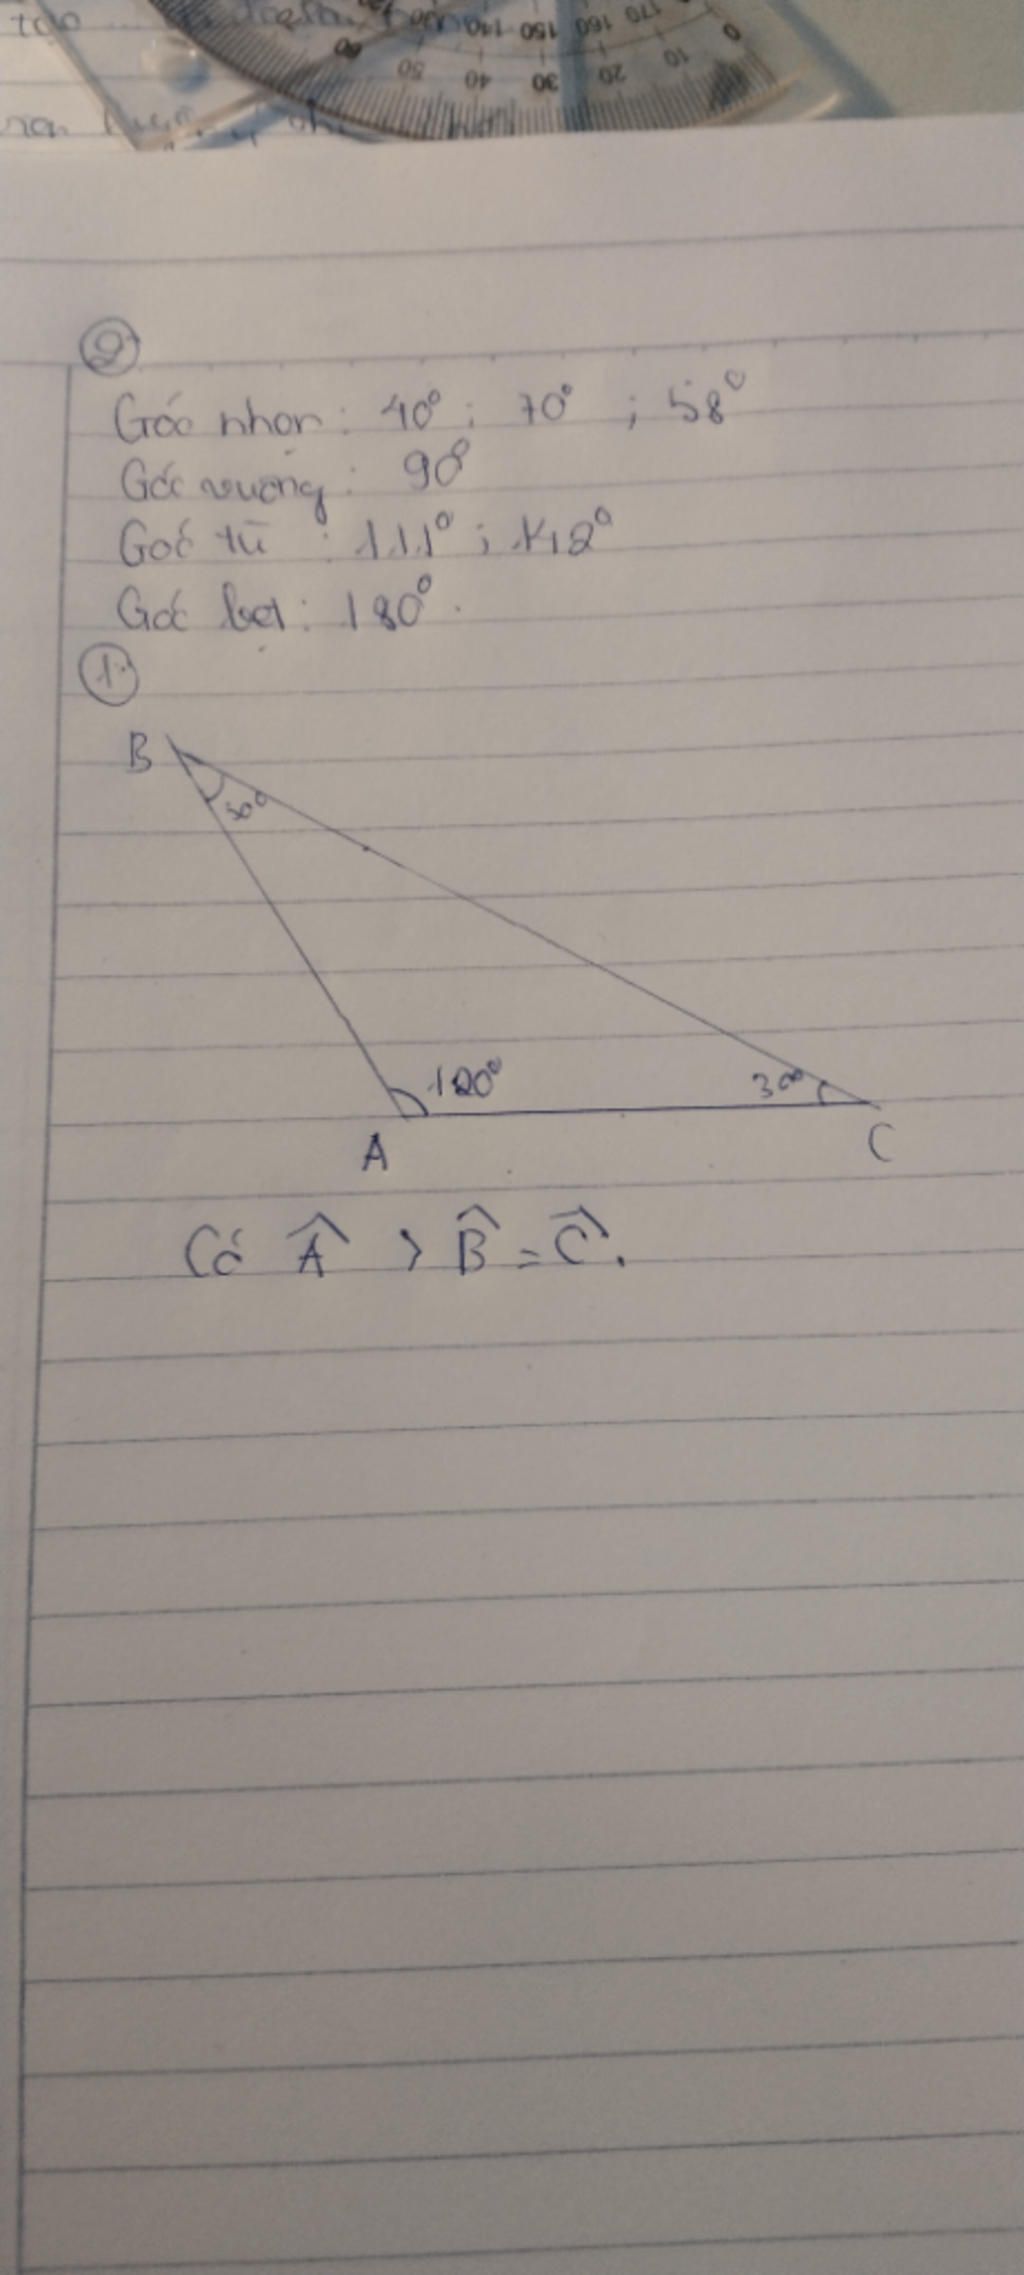 170
160
150
140
0
10
20
30
40
50
②
Góc nhọn: 40° ; 70° ; 58°
Góc vuông: 90°
Góc tù : 111° ; 142°
Góc bẹt: 180°.
①
B
30°
120°
30°
A
C
Có Â > B̂ = Ĉ.